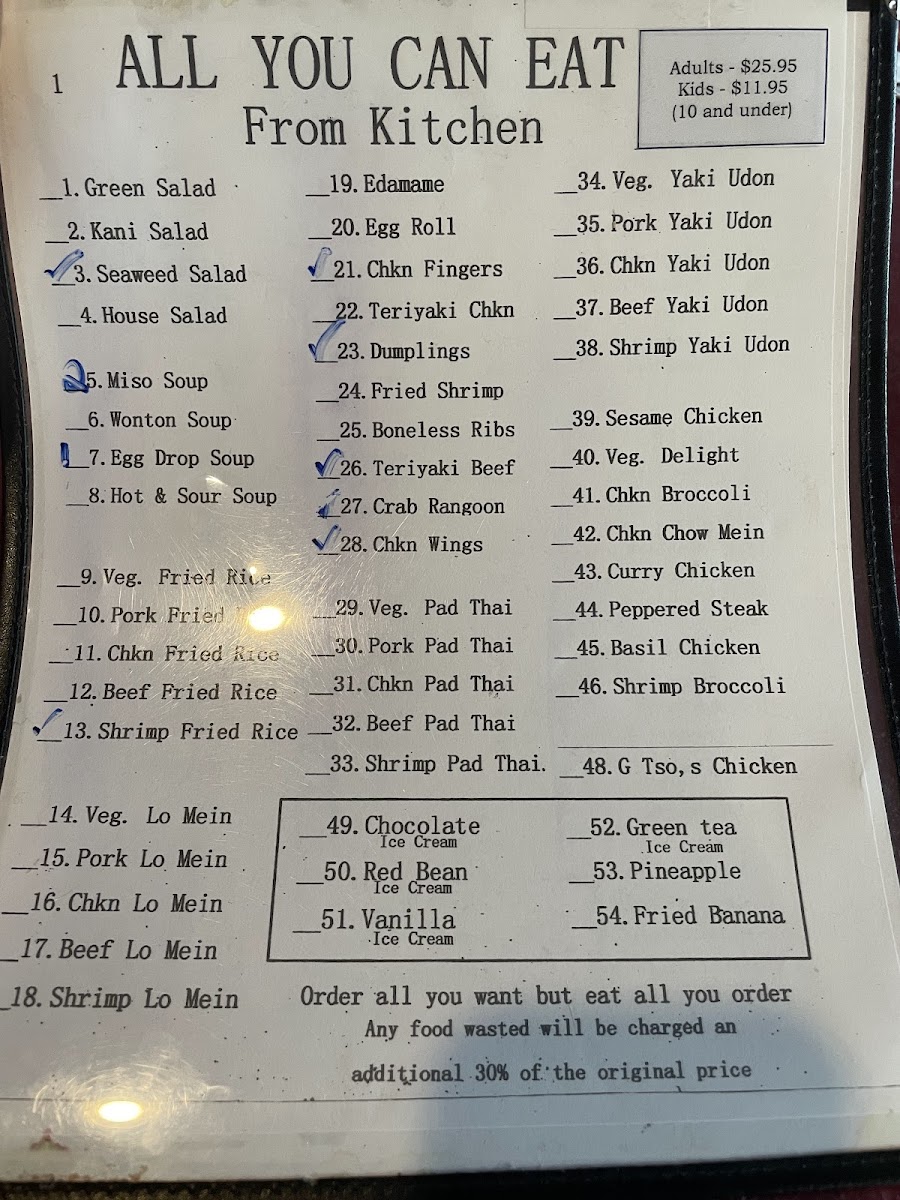 1
ALL YOU CAN EAT
From Kitchen
Adults - $25.95
Kids - $11.95
(10 and under)
__1. Green Salad
__2. Kani Salad
✓ 3. Seaweed Salad
__4. House Salad
2 5. Miso Soup
__6. Wonton Soup
1 7. Egg Drop Soup
__8. Hot & Sour Soup
__9. Veg. Fried Rice
__10. Pork Fried
__11. Chkn Fried Rice
__12. Beef Fried Rice
✓ 13. Shrimp Fried Rice
__14. Veg. Lo Mein
__15. Pork Lo Mein
__16. Chkn Lo Mein
__17. Beef Lo Mein
__18. Shrimp Lo Mein
__19. Edamame
__20. Egg Roll
✓ 21. Chkn Fingers
__22. Teriyaki Chkn
✓ 23. Dumplings
__24. Fried Shrimp
__25. Boneless Ribs
✓ 26. Teriyaki Beef
✓ 27. Crab Rangoon
✓ 28. Chkn Wings
__29. Veg. Pad Thai
__30. Pork Pad Thai
__31. Chkn Pad Thai
__32. Beef Pad Thai
__33. Shrimp Pad Thai.
__34. Veg. Yaki Udon
__35. Pork Yaki Udon
__36. Chkn Yaki Udon
__37. Beef Yaki Udon
__38. Shrimp Yaki Udon
__39. Sesame Chicken
__40. Veg. Delight
__41. Chkn Broccoli
__42. Chkn Chow Mein
__43. Curry Chicken
__44. Peppered Steak
__45. Basil Chicken
__46. Shrimp Broccoli
__48. G Tso,s Chicken
__49. Chocolate
Ice Cream
__50. Red Bean
Ice Cream
__51. Vanilla
Ice Cream
__52. Green tea
Ice Cream
__53. Pineapple
__54. Fried Banana
Order all you want but eat all you order
Any food wasted will be charged an
additional 30% of the original price